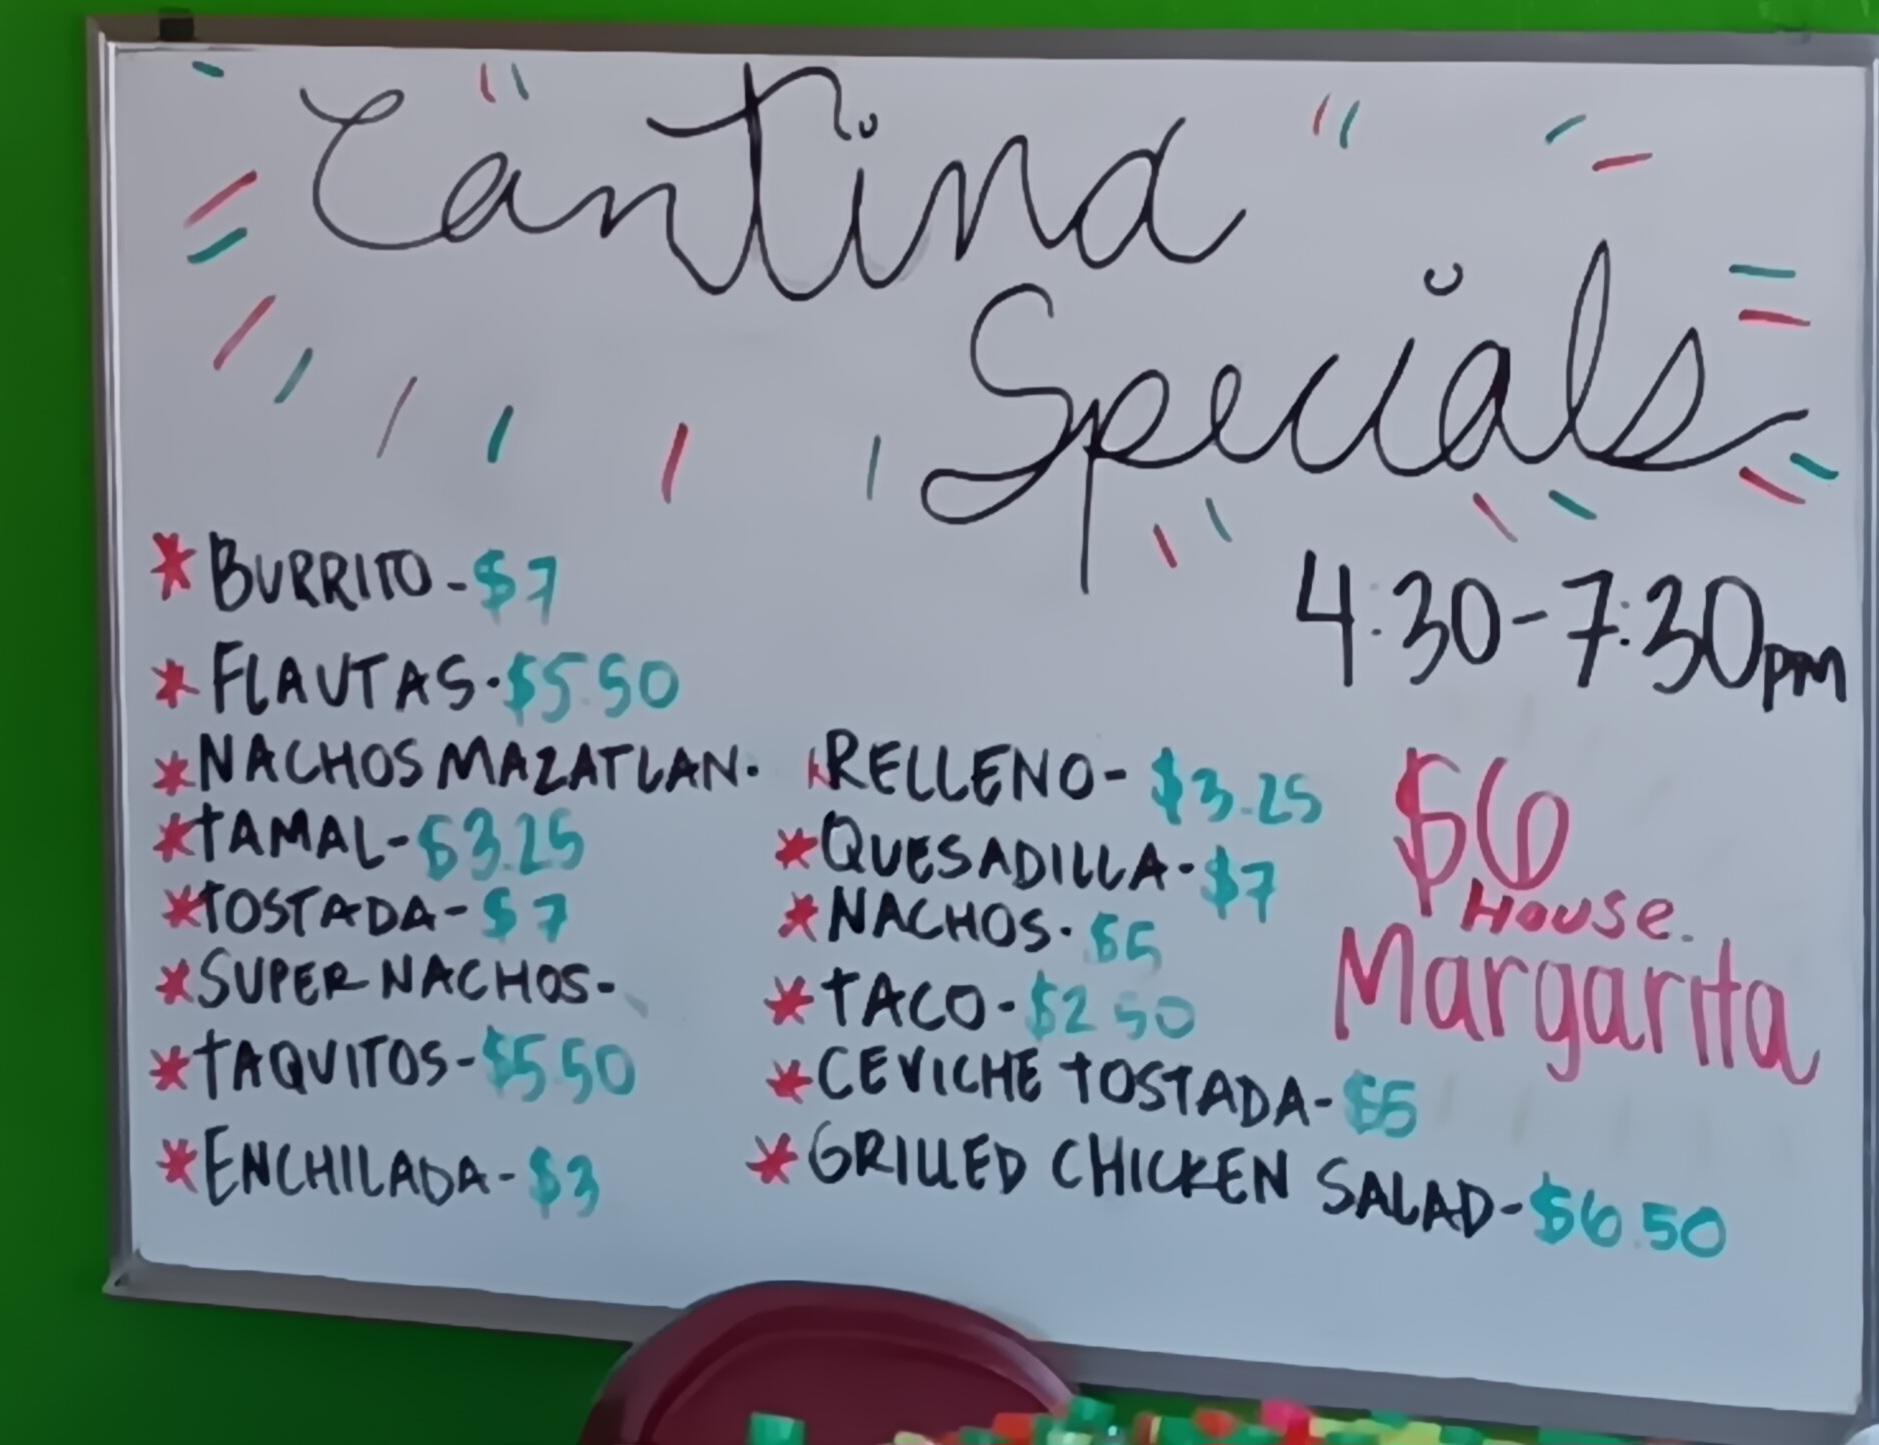 Cantina
Specials
4:30-7:30pm
* BURRITO-$7
* FLAUTAS-$5.50
* NACHOS MAZATLAN-
* TAMAL-$3.25
* TOSTADA-$7
* SUPER NACHOS-
* TAQUITOS-$5.50
* ENCHILADA-$3
* RELLENO-$3.25
* QUESADILLA-$7
* NACHOS-$5
* TACO-$2.50
* CEVICHE TOSTADA-$5
* GRILLED CHICKEN SALAD-$6.50
$6
House
Margarita